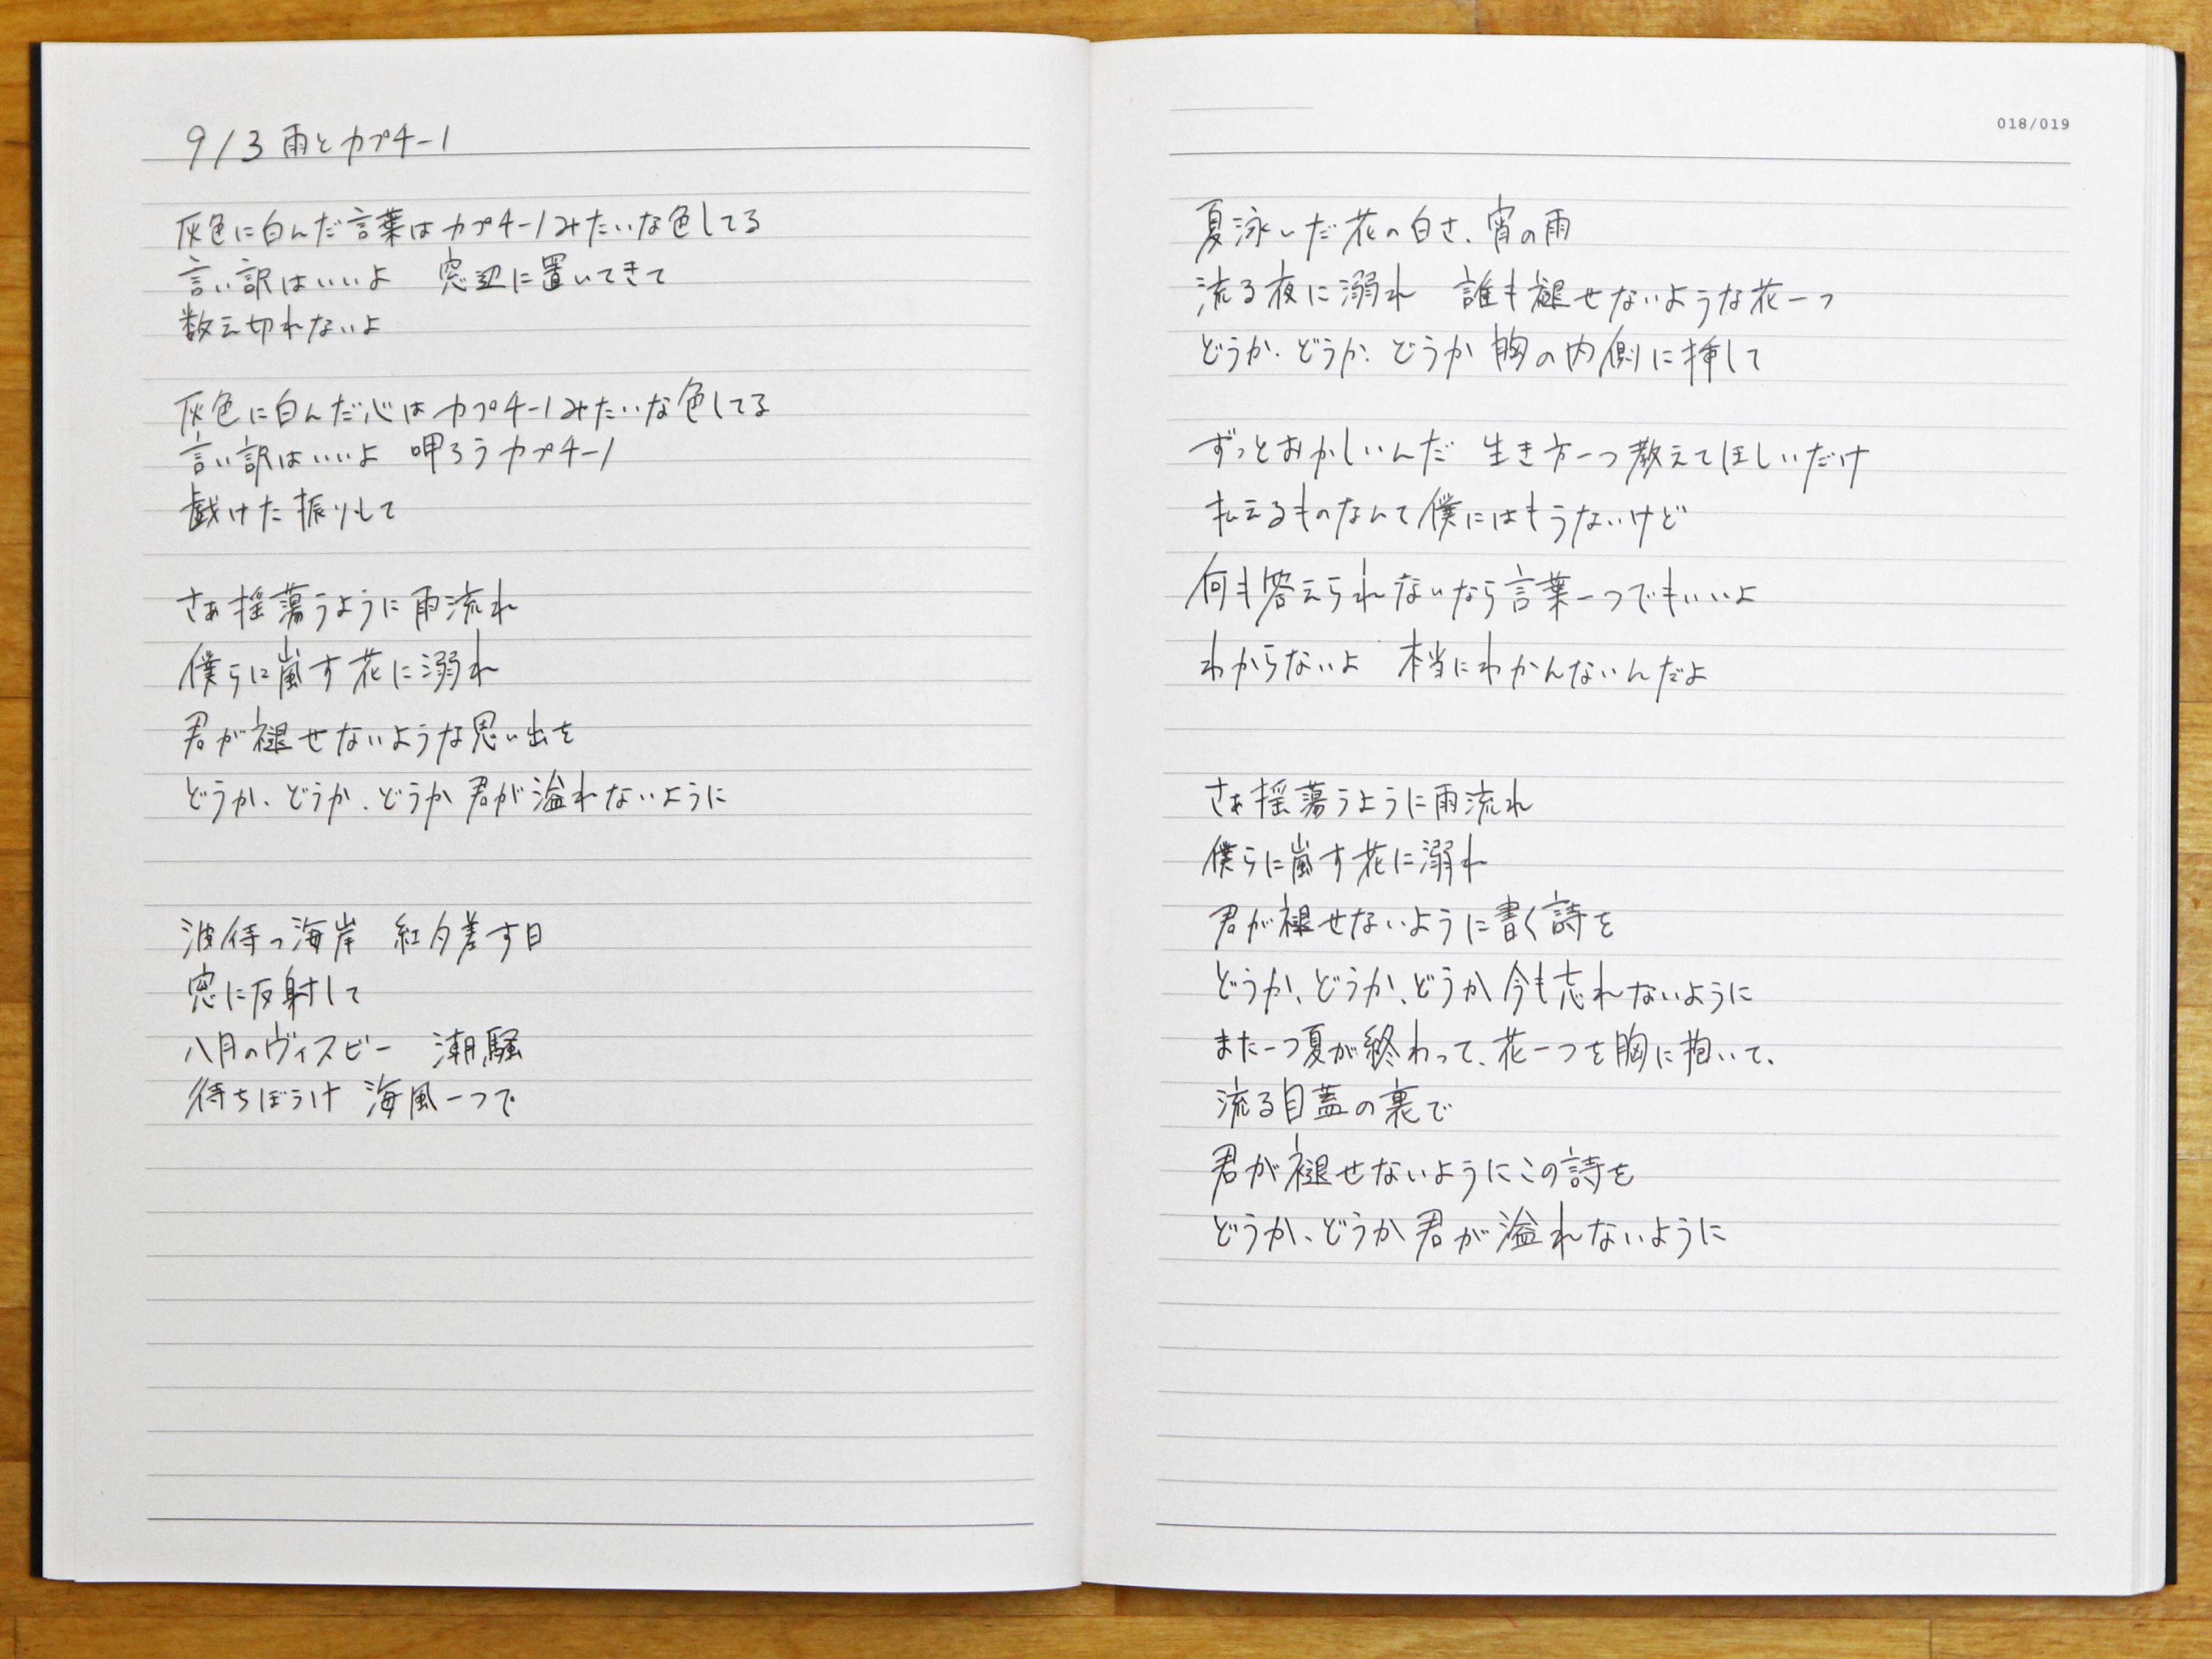 9/3 雨とカプチーノ
灰色に白んだ言葉はカプチーノみたいな色してる
言い訳はいいよ　窓辺に置いてきて
数え切れないよ
灰色に白んだ心はカプチーノみたいな色してる
言い訳はいいよ　呷ろうカプチーノ
戯けた振りして
さぁ揺蕩うように雨流れ
僕らに嵐す花に溺れ
君が褪せないような思い出を
どうか、どうか、どうか君が溢れないように
波待つ海岸　紅夕差す日
窓に反射して
八月のヴィスビー　潮騒
待ちぼうけ　海風一つで
018/019
夏泳いだ花の白さ、宵の雨
流る夜に溺れ　誰も褪せないような花一つ
どうか、どうか、どうか胸の内側に挿して
ずっとおかしいんだ　生き方一つ教えてほしいだけ
払えるものなんて僕にはもうないけど
何も答えられないなら言葉一つでもいいよ
わからないよ　本当にわかんないんだよ
さぁ揺蕩うように雨流れ
僕らに嵐す花に溺れ
君が褪せないように書く詩を
どうか、どうか、どうか今も忘れないように
また一つ夏が終わって、花一つを胸に抱いて、
流る目蓋の裏で
君が褪せないようにこの詩を
どうか、どうか君が溢れないように